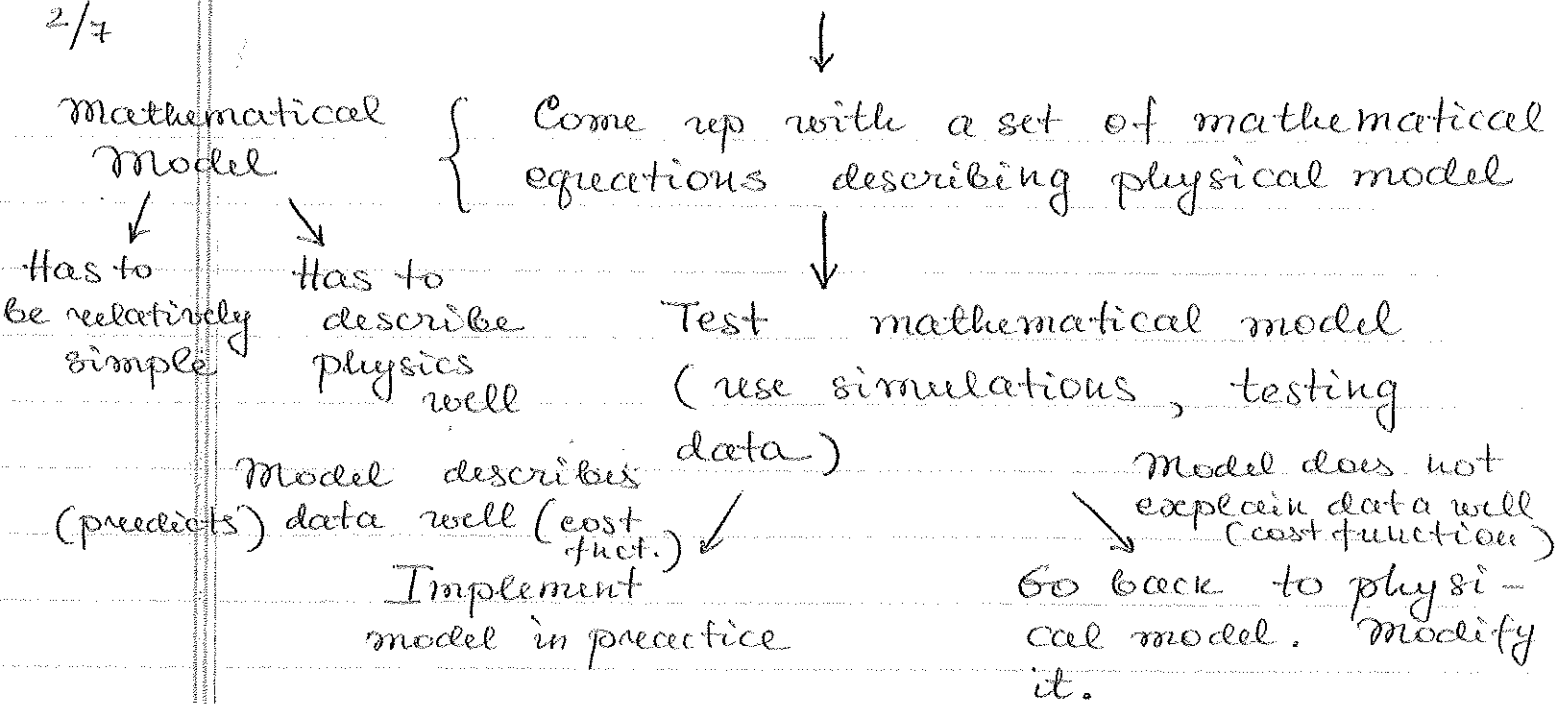 2/7
Mathematical
Model
Come up with a set of mathematical
equations describing physical model
Has to
be relatively
simple
Has to
describe
physics
well
Test mathematical model
(use simulations, testing
data)
Model describes
(predicts) data well (cost
funct.)
Implement
model in practice
Model does not
explain data well
(cost function)
Go back to physi-
cal model. Modify
it.